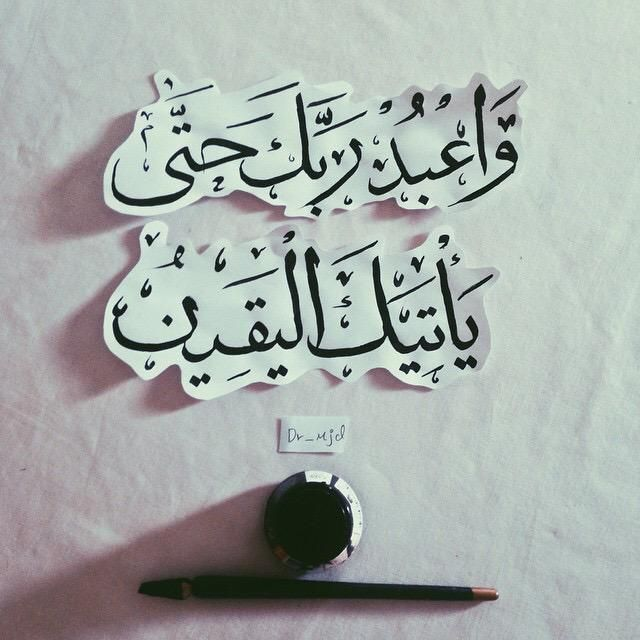 وَاعْبُدْ رَبَّكَ حَتَّىٰ
يَأْتِيَكَ الْيَقِينُ
Dr_Mjd